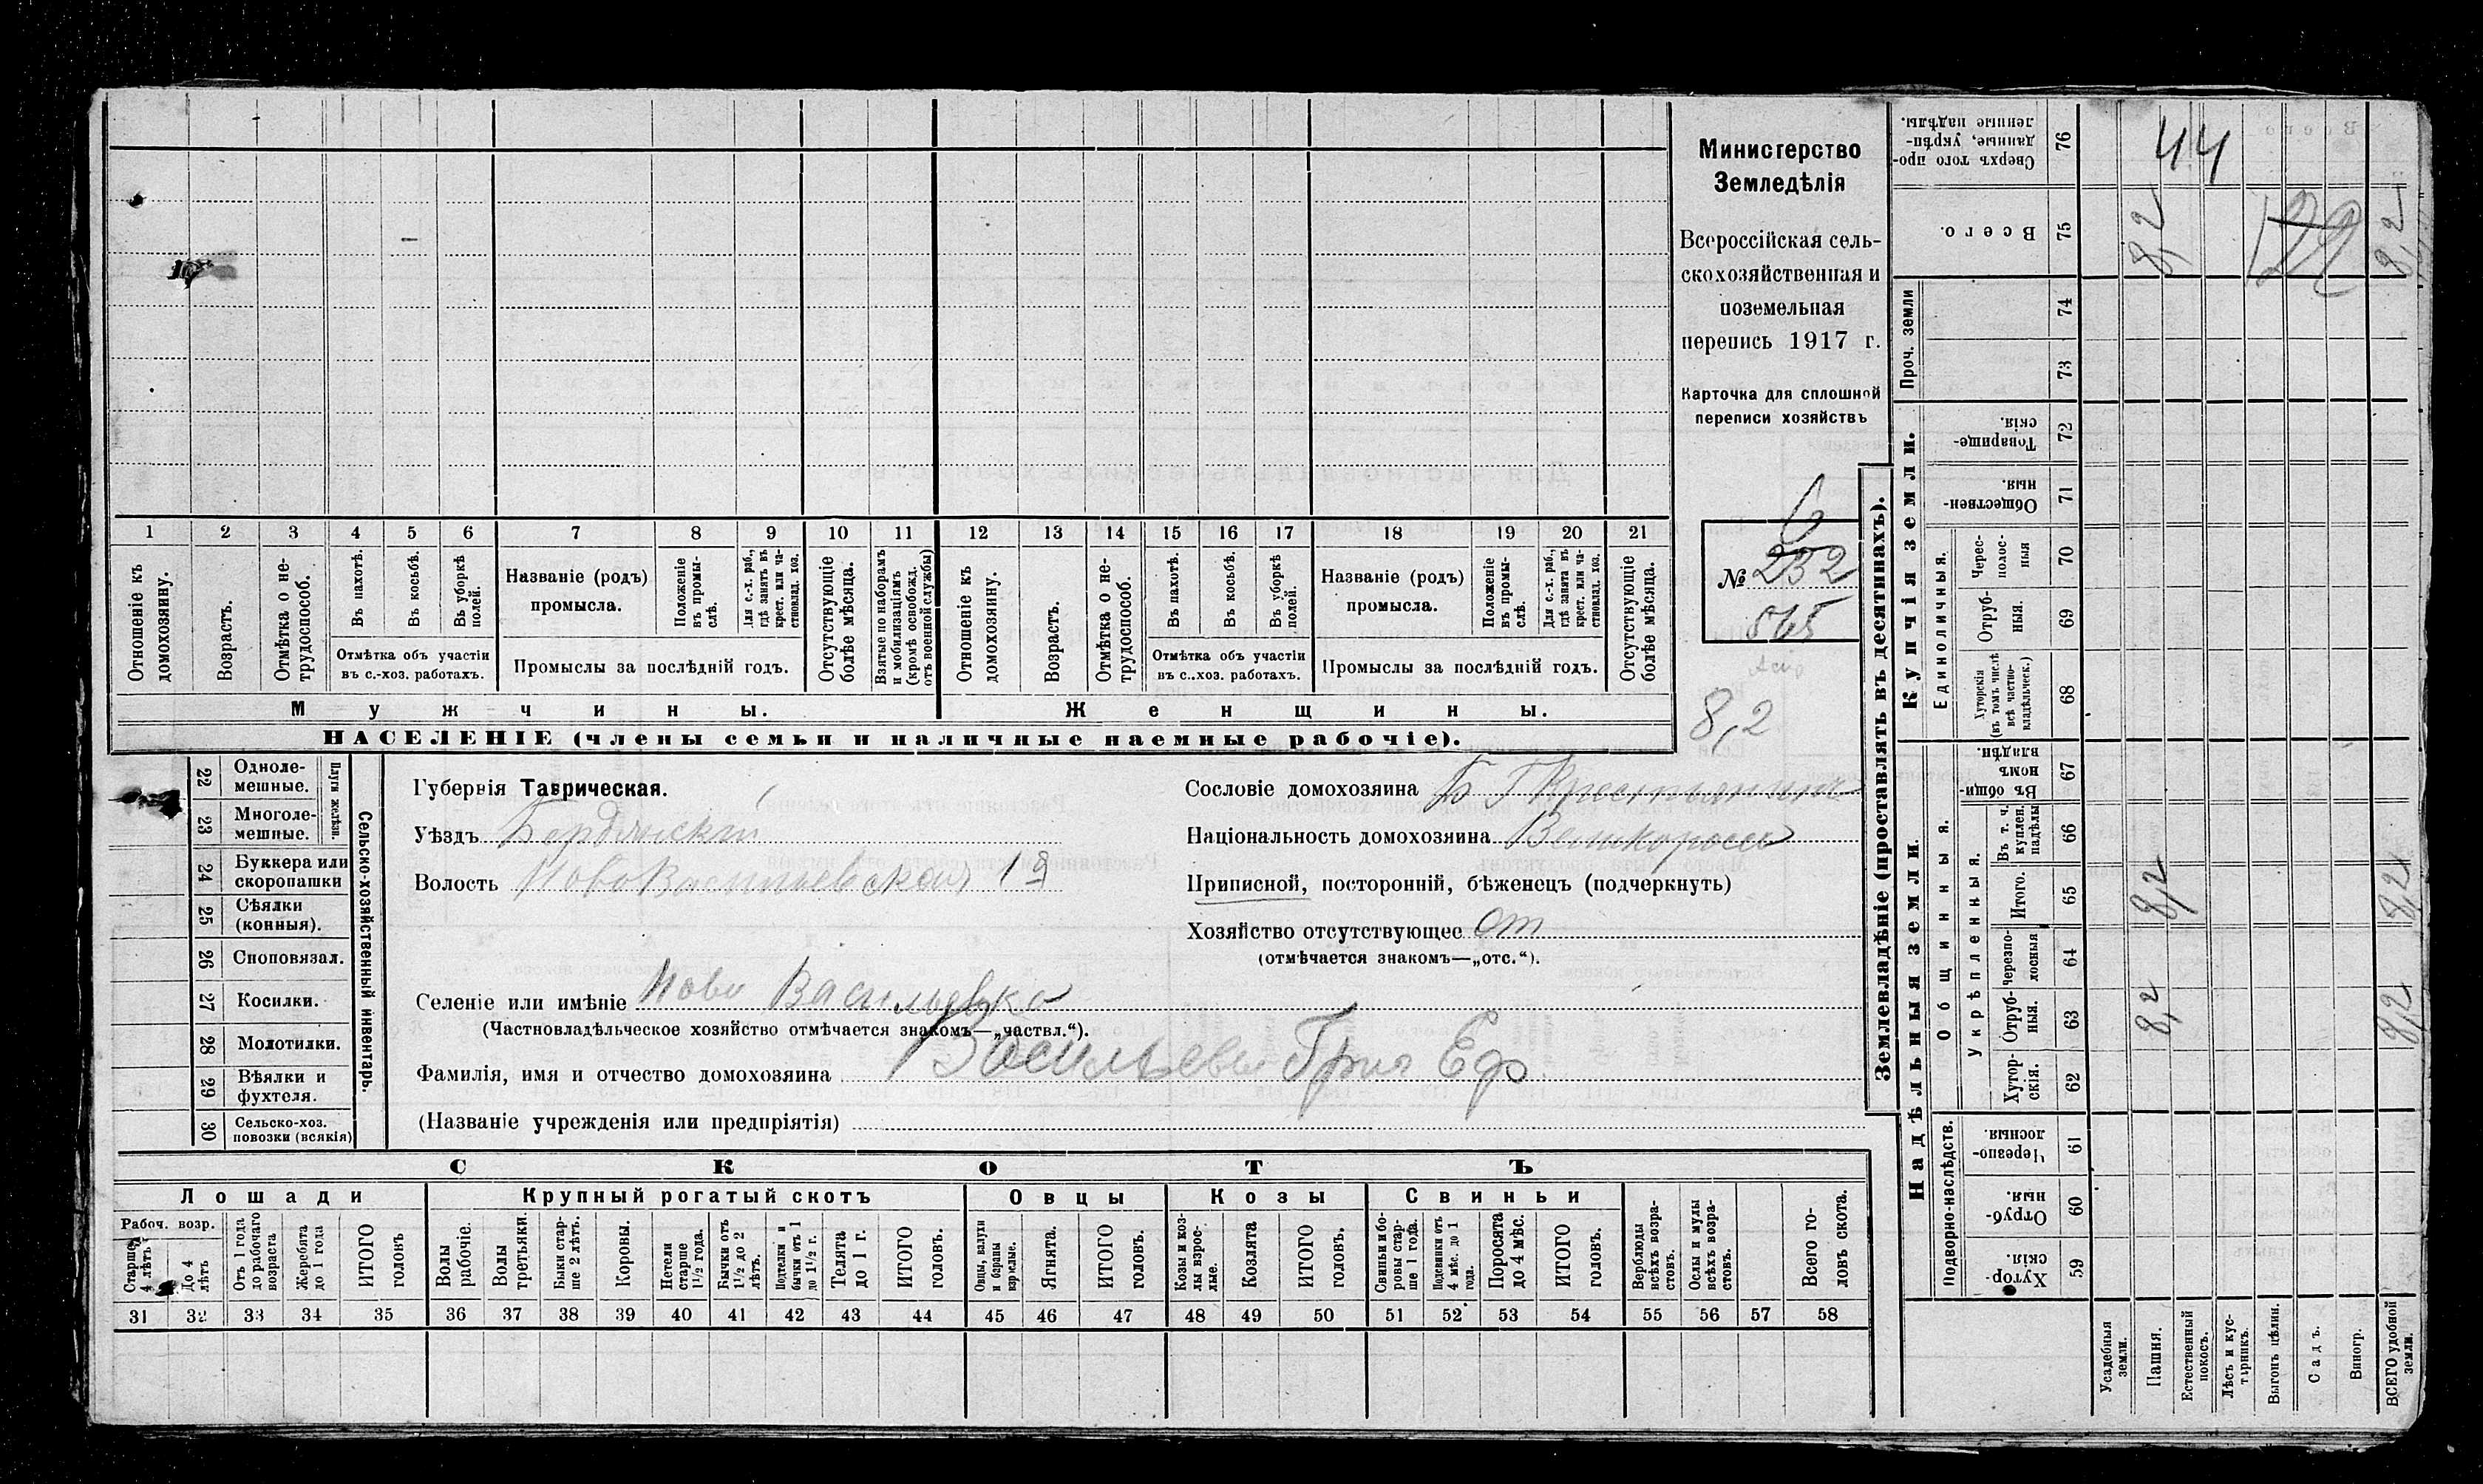 Министерство
Земледѣлія
Всероссійская сель-
скохозяйственная и
поземельная
перепись 1917 г.
Карточка для сплошной
переписи хозяйствъ
6
№ 232
565
8,2
1 2 3 4 5 6 7 8 9 10 11 12 13 14 15 16 17 18 19 20 21
Отношеніе къ домохозяину.
Возрастъ.
Отмѣтка о не-трудоспособ.
Въ пахотѣ.
Въ косьбѣ.
Въ уборкѣ полей.
Отмѣтка объ участіи
въ с.-хоз. работахъ.
Названіе (родъ)
промысла.
Положеніе въ промы-слѣ.
Для с.-х. раб., гдѣ занятъ въ крест. или ча-стновлад. хоз.
Промыслы за послѣдній годъ.
Отсутствующіе болѣе мѣсяца.
Взятые по наборамъ и мобилизаціямъ (кромѣ освобожд. отъ военной службы)
Отношеніе къ домохозяину.
Возрастъ.
Отмѣтка о не-трудоспособ.
Въ пахотѣ.
Въ косьбѣ.
Въ уборкѣ полей.
Отмѣтка объ участіи
въ с..хоз. работахъ.
Названіе (родъ)
промысла.
Положеніе въ промы-слѣ.
Для с.-х. раб., гдѣ занята въ крест. или ча-стновлад. хоз.
Промыслы за послѣдній годъ.
Отсутствующіе болѣе мѣсяца.
Мужчины.
Женщины.
НАСЕЛЕНІЕ (члены семьи и наличные наемные рабочіе).
22 Одноле-мешные.
23 Многоле-мешные.
Плуги желѣзн.
24 Буккера или скоропашки
25 Сѣялки (конныя).
26 Споповязал.
27 Косилки.
28 Молотилки.
29 Вѣялки и фухтеля.
30 Сельско-хоз. повозки (всякія)
Сельско-хозяйственный инвентарь.
Губернія Таврическая.
Уѣздъ Бердянскій
Волость Ново Васильевская 1я
Селеніе или имѣніе Ново Васильевка
(Частновладѣльческое хозяйство отмѣчается знакомъ—„частвл.“).
Фамилія, имя и отчество домохозяина Васильевъ Григ Еф
(Названіе учрежденія или предпріятія)
Сословіе домохозяина Б Г Крестьянинъ
Національность домохозяина Великороссъ
Приписной, посторонній, бѣженецъ (подчеркнуть)
Хозяйство отсутствующее от
(отмѣчается знакомъ—„отс.“).
СКОТЪ
Лошади
Крупный рогатый скотъ
Овцы
Козы
Свиньи
Рабоч. возр.
Старше 4 лѣтъ
До 4 лѣтъ
Отъ 1 года до рабочаго возраста
Жеребята до 1 года
ИТОГО головъ
Волы рабочіе.
Волы третьяки.
Быки стар-ше 2 лѣтъ.
Коровы.
Нетели старше 1½ года.
Бычки отъ 1½ до 2 лѣтъ.
Подтелки и бычки отъ 1 до 1½ г.
Телята до 1 г.
ИТОГО головъ.
Овцы, валухи и бараны взрослые.
Ягнята.
ИТОГО головъ.
Козы и коз-лы взрос-лые.
Козлята
ИТОГО головъ.
Свиньи и бо-ровы стар-ше 1 года.
Подсвинки отъ 4 мѣс. до 1 года.
Поросята до 4 мѣс.
ИТОГО головъ.
Верблюды всѣхъ возра-стовъ.
Ослы и мулы всѣхъ возра-стовъ.
Всего го-ловъ скота.
31 32 33 34 35 36 37 38 39 40 41 42 43 44 45 46 47 48 49 50 51 52 53 54 55 56 57 58
Землевладѣніе (проставлять въ десятинахъ).
Надѣльныя земли.
Купчія земли.
Проч. земли
Подворно-наслѣдств.
Общинныя.
Укрѣпленныя.
Единоличныя.
Хутор-скія. 59
Отруб-ныя. 60
Черезпо-лосныя. 61
Хутор-скія. 62
Отруб-ныя. 63
Черезпо-лосныя 64
Итого. 65
Въ т. ч. куплен. надѣлы 66
Въ общи-номъ владѣн. 67
Хуторскія (въ томъ числѣ всѣ частно-владѣльческ.) 68
Отруб-ныя. 69
Черес-полос-ныя 70
Обществен-ныя. 71
Товарище-скія. 72
73
74
Всего. 75
Сверхъ того про-данные, укрѣп-ленные надѣлы. 76
Усадебныя земли.
Пашня.
Естественный покосъ.
Лѣсъ и кус-тарникъ.
Выгонъ цѣлин.
Садъ.
Виногр.
ВСЕГО удобной земли.
44
8,2
8,2
8,2
8,2
8,2
8,2
122